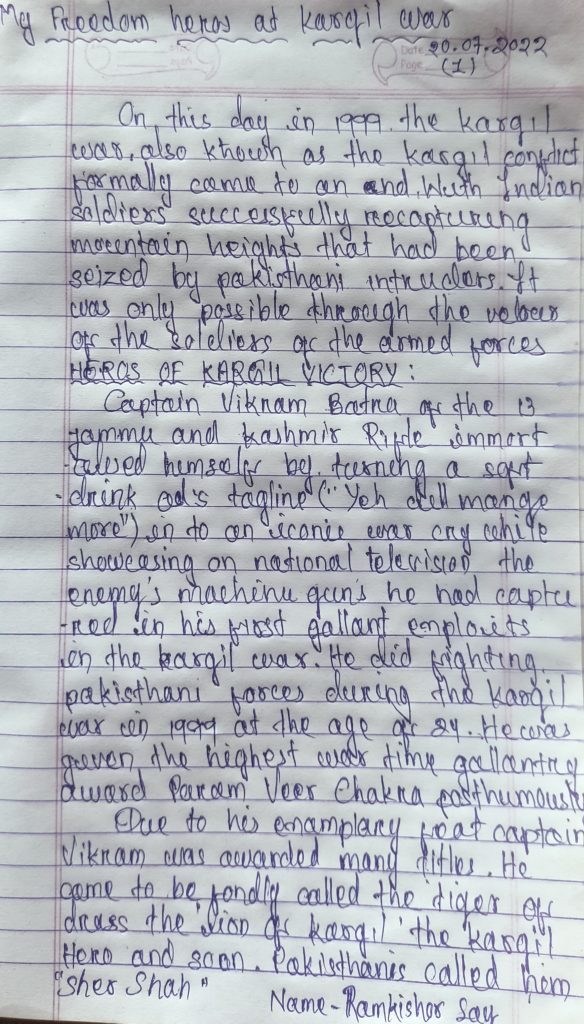 My Freedom heros at kargil war
Date 20.07.2022
Page (1)
On this day in 1999 the kargil
war, also known as the kargil conflict
formally came to an end. With Indian
soldiers successfully recapturing
mountain heights that had been
seized by pakisthani intruders. It
was only possible through the velour
of the soldiers of the armed forces
HEROS OF KARGIL VICTORY:
Captain Viknam Batna of the 13
Jammu and kashmir Rifle immort
-alised hemself by turning a soft
-drink ad's tagline ("Yeh dell mange
more") in to an iconic war cry while
showcasing on national television the
enemy's machine gun's he had captu
-red in his first gallant emploits
in the kargil war. He did fighting
pakisthani forces during the kargil
war in 1999 at the age of 24. He was
given the highest war time gallantry
award Param Veer Chakna posthumously
Due to his enamplary feat captain
Viknam was awarded many titles. He
came to be fondly called the 'tiger of
drass the 'lion of kargil' 'the kargil
Hero and soon. Pakisthanis called him
"Sher Shah"
Name - Ramkishor Say